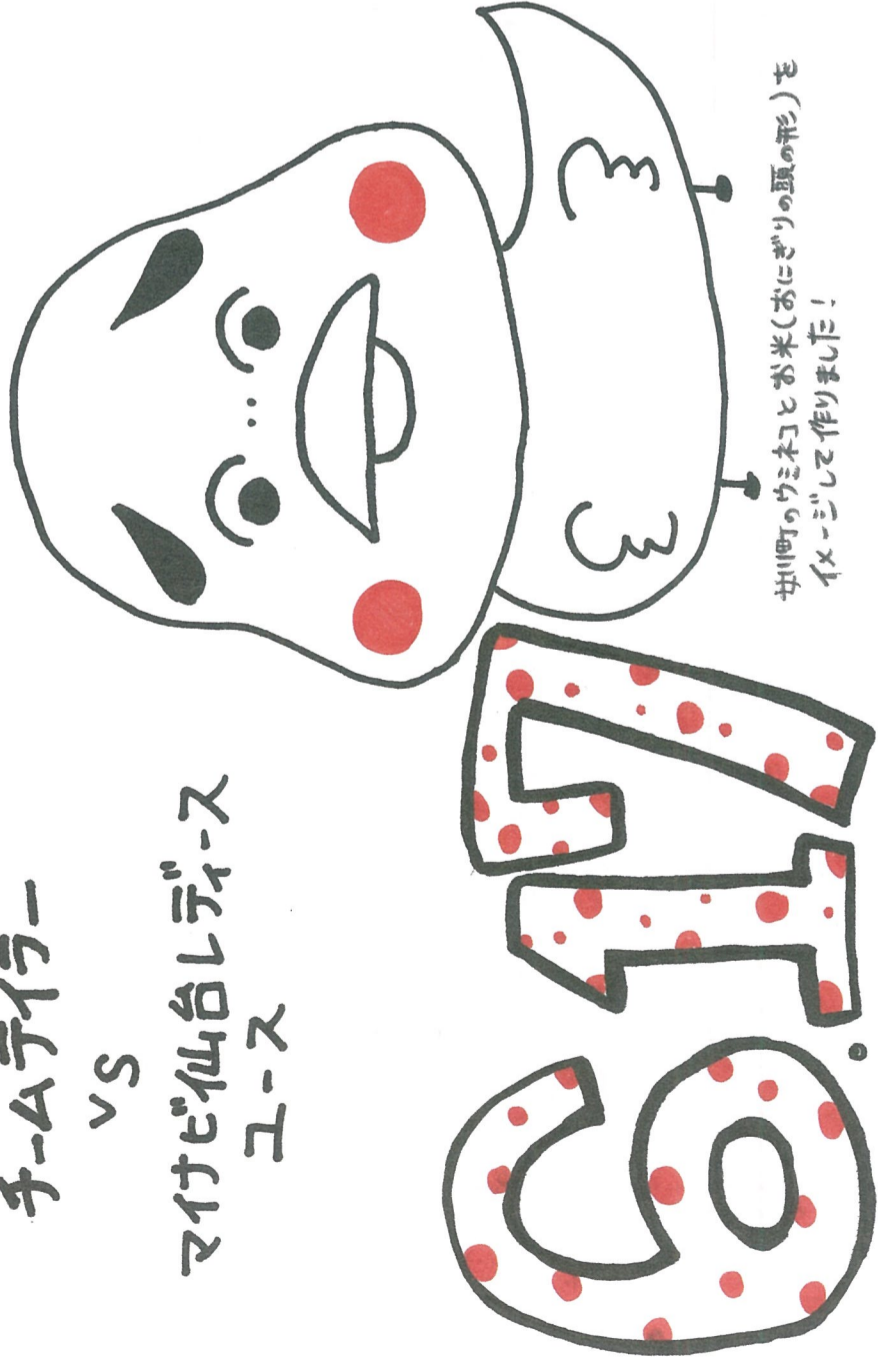 チームテイラー
vs
マイナビ仙台レディース
ユース
6.17
女川町のウミネコとお米(おにぎりの頭の形)を
イメージして作りました!